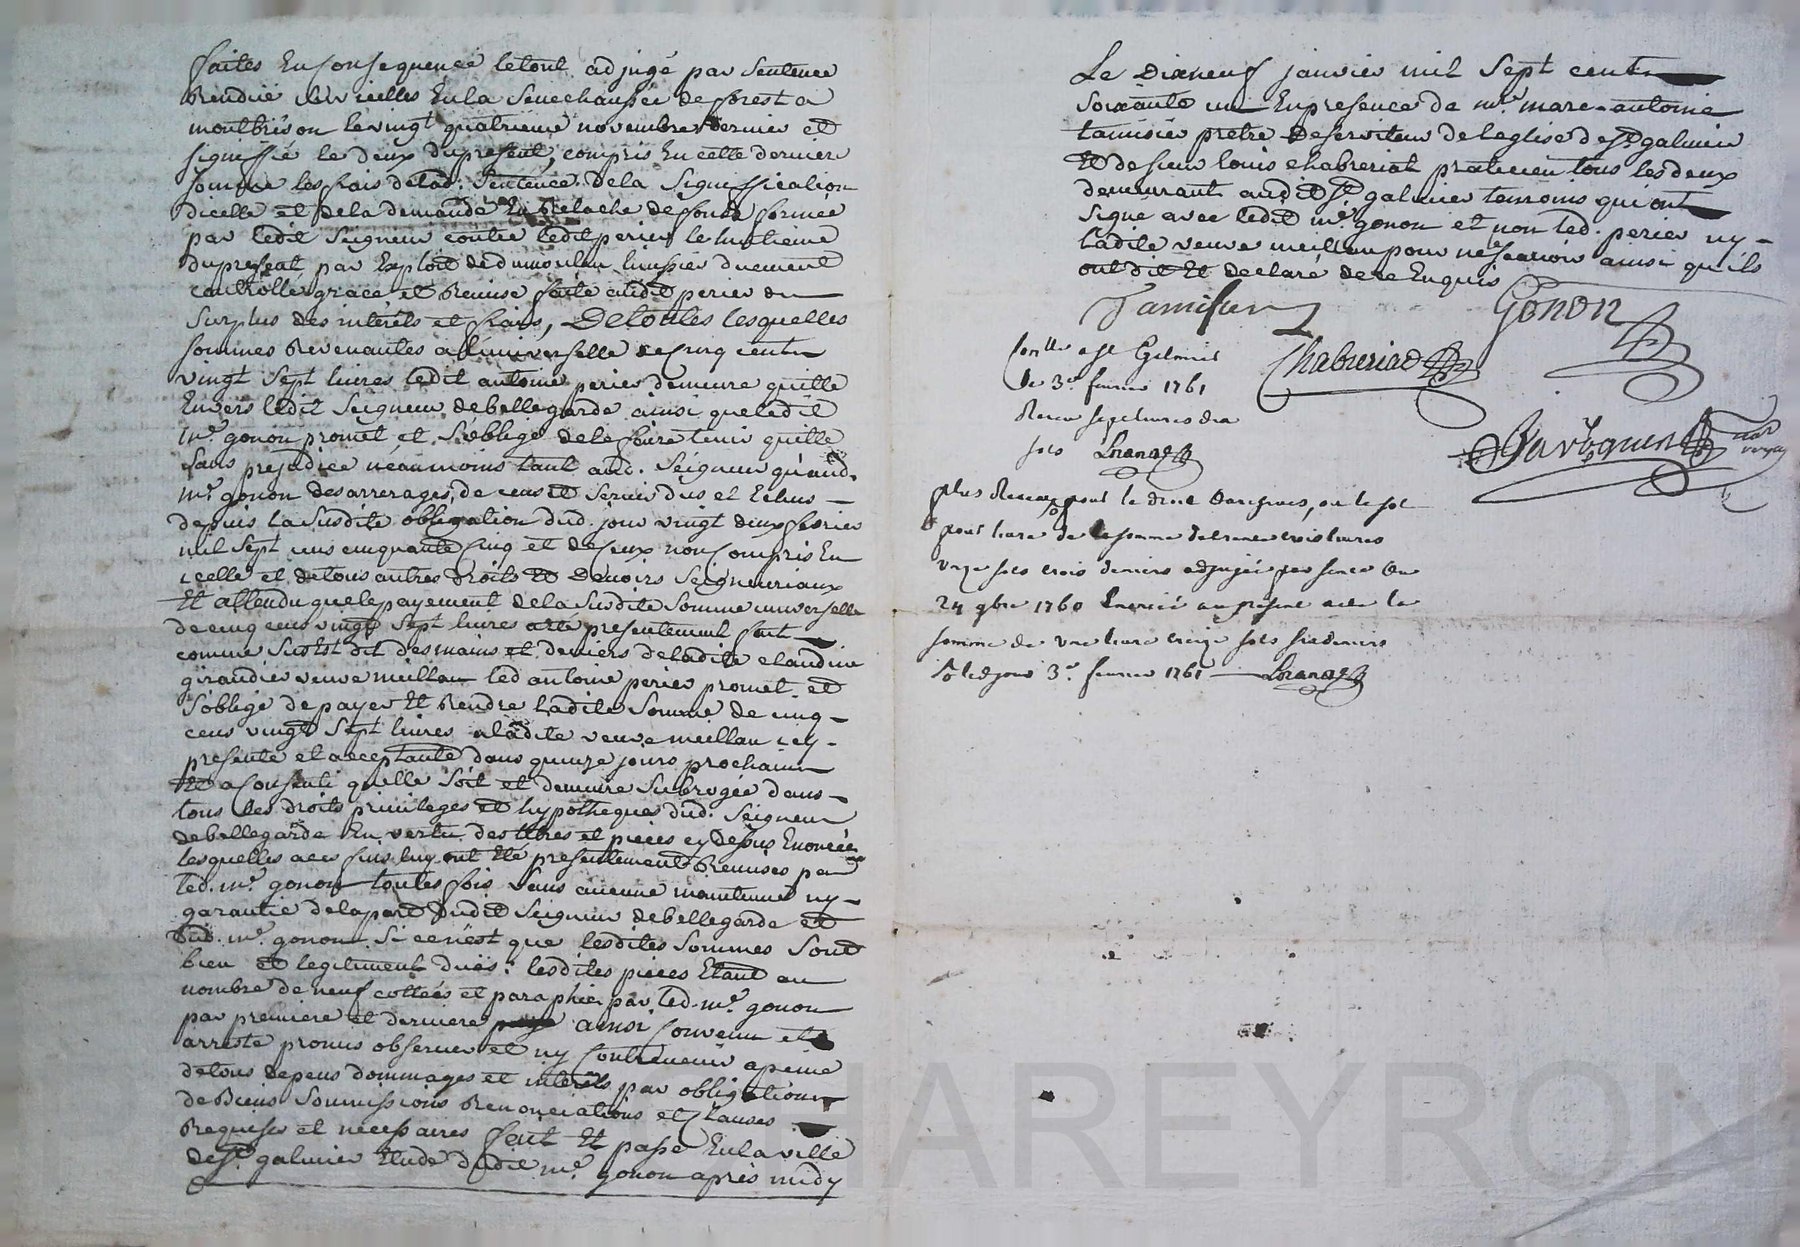 faites En Consequence le tout adjugé par Sentence
Rendüe sur icelles En la Senechaussée de forest a
montbrison le vingt quatrieme novembre dernier et
signiffié le deux du present, compris En cette derniere
somme les frais de lad. Sentence de la Signiffication
dicelle et de la demande En Relache de fonds formée
par ledit Seigneur contre ledit perier le huitieme
du present par Exploit de dumoulin huissier duement
controllé grace et Remise faite audit perier du
Surplus des interêts et frais, De toutes lesquelles
sommes Revenantes a l'universelle de Cinq cents
vingt Sept livres ledit antoine perier demeure quitte
Envers ledit Seigneur de bellegarde ainsi que ledit
me. gonon promet et S'oblige de le faire tenir quitte
sans prejudice néanmoins tant aud. Seigneur qu'aud.
me. gonon des arrerages de cens et Servis dus et Echus
depuis la Susdite obligation dud. jour vingt deux fevrier
mil Sept cens cinquante Cinq et de Ceux non Compris En
icelle et de tous autres droits et Devoirs Seigneuriaux
Et attendu que le payement de la Susdite Somme universelle
de cinq cens vingt Sept livres a été presentement fait
comme Sus est dit des mains et deniers de ladite claudine
giraudier veuve meillan led antoine perier promet et
S'oblige de payer Et Rendre ladite Somme de cinq
cens vingt Sept livres a ladite veuve meillan icy
presente et acceptante dans quinze jours prochains
Et a Consenti qu'elle Soit et demeure Subrogée dans
tous les droits privileges et hypotheques dud. Seigneur
de bellegarde En vertu des titres et pieces cy dessus Enoncées
lesquelles a ces fins luy ont Eté presentement Remises par
led. me. gonon toutes fois sans aucune maintenue ny
garantie de la part dudit Seigneur de bellegarde et
dud. me. gonon Si ce n'est que lesdites Sommes Sont
bien et legitiment duës; lesdites pieces Etant au
nombre de neuf cottées et paraphées par led. me. gonon
par premiere et derniere ainsi Convenu et
arresté promis observer et ny Contrevenir a peine
de tous depens dommages et interêts par obligations
de Biens Soumissions Renonciations et Clauses
Requises et necessaires fait Et passé En la ville
de St. galmier Etude dudit me. gonon après midy
Le Dixneuf janvier mil Sept cents
Soixante un En presence de mre. marc-antoine
tamisier prêtre Deserviteur de l'eglise de St galmier
Et de sieur louis chabreriat praticien tous les deux
demeurant audit St galmier temoins qui ont
signé avec ledit me. gonon et non led. perier ny
ladite veuve meillan pour ne sçavoir ainsi qu'ils
ont dit Et declaré de ce Enquis
Tamisier
Gonon
Conllé a St Galmier
le 3e. fevrier 1761
Chabreriat
Receu sept livres dix
sols
plus Receu pour le droit
pour livre de la somme de trente trois livres
onze sols trois deniers adjugée par sence du
24 9bre 1760 Enoncée au présent acte la
somme de une livre treize sols six deniers
led jour 3e. fevrier 1761
HAREYRON